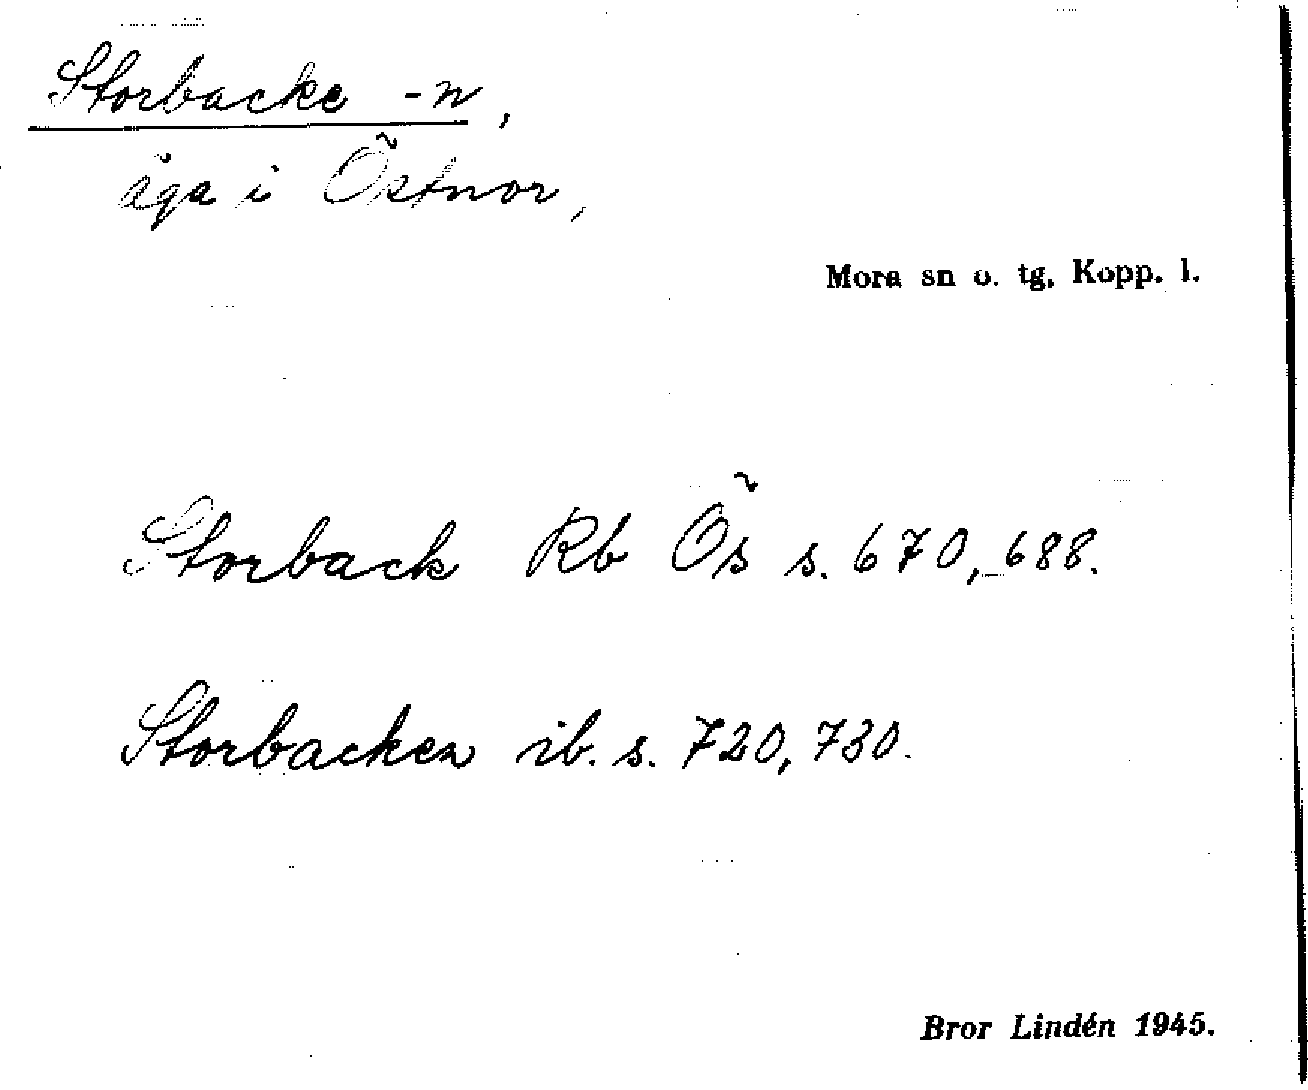 Storbacke -n,
äga i Östnor,
Mora sn o. tg, Kopp. l.
Storback Rb Ös s. 670, 688.
Storbacken ib. s. 720, 730.
Bror Lindén 1945.